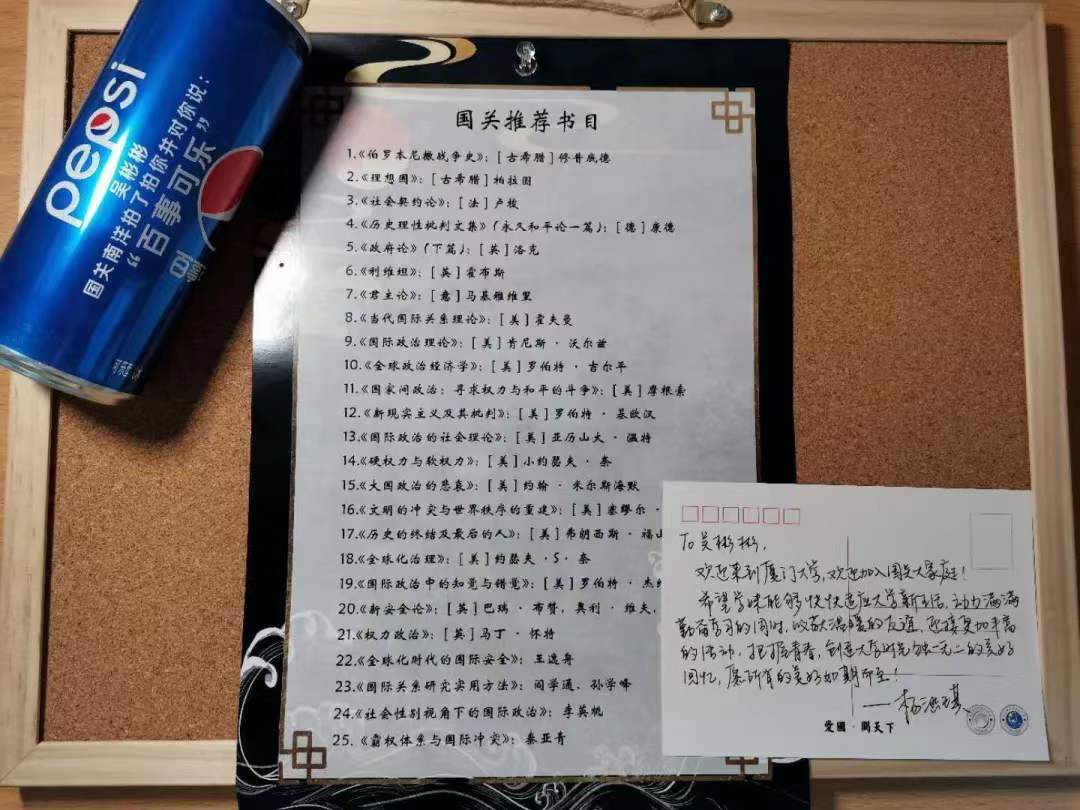 pepsi
吴彬彬
国关南洋拍了拍你并对你说：
“百事可乐”
国关推荐书目
1.《伯罗奔尼撒战争史》：[古希腊]修昔底德
2.《理想国》：[古希腊]柏拉图
3.《社会契约论》：[法]卢梭
4.《历史理性批判文集》（永久和平论一篇）：[德]康德
5.《政府论》（下篇）：[英]洛克
6.《利维坦》：[英]霍布斯
7.《君主论》：[意]马基雅维里
8.《当代国际关系理论》：[美]霍夫曼
9.《国际政治理论》：[美]肯尼斯·沃尔兹
10.《全球政治经济学》：[美]罗伯特·吉尔平
11.《国家间政治：寻求权力与和平的斗争》：[美]摩根索
12.《新现实主义及其批判》：[美]罗伯特·基欧汉
13.《国际政治的社会理论》：[美]亚历山大·温特
14.《硬权力与软权力》：[美]小约瑟夫·奈
15.《大国政治的悲哀》：[美]约翰·米尔斯海默
16.《文明的冲突与世界秩序的重建》：[美]塞缪尔·
17.《历史的终结及最后的人》：[美]弗朗西斯·福山
18.《全球化治理》：[美]约瑟夫·S·奈
19.《国际政治中的知觉与错觉》：[美]罗伯特·杰
20.《新安全论》：[英]巴瑞·布赞，奥利·维夫，
21.《权力政治》：[英]马丁·怀特
22.《全球化时代的国际安全》：王逸舟
23.《国际关系研究实用方法》：阎学通、孙学峰
24.《社会性别视角下的国际政治》：李英桃
25.《霸权体系与国际冲突》：秦亚青
To 吴彬彬，
欢迎来到厦门大学，欢迎加入国关大家庭！
希望学妹能够快快适应大学新生活，动力满满
勤奋学习的同时，收获温暖的友谊，迎接更加丰富
的活动，把握青春，创造大学时光独一无二的美好
回忆，愿所有的美好如期而至！
爱國·關天下